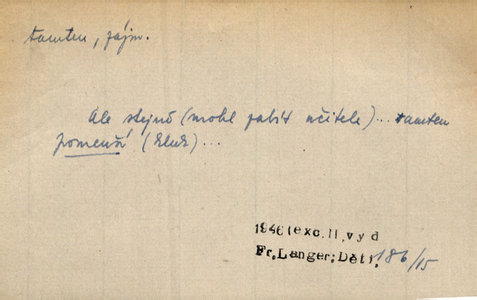 tamten, zájm.
Ale stejně (mohl zabít učitele)... tamten
pomenší (kluk)...
1946(exc.II,vyd
Fr.Langer:Děti,186/15